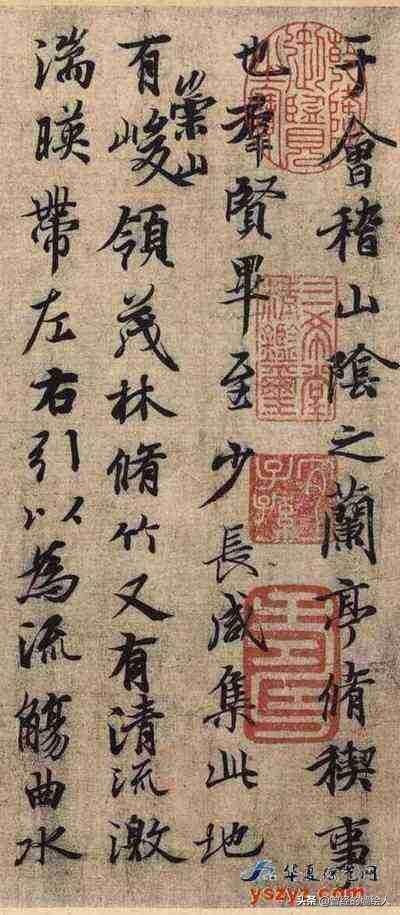 于會稽山陰之蘭亭脩稧事
也羣賢畢至少長咸集此地
有崇山峻領茂林脩竹又有清流激
湍暎帶左右引以為流觴曲水
三希堂精鑑璽
宜子孫
yszyz.com
头条